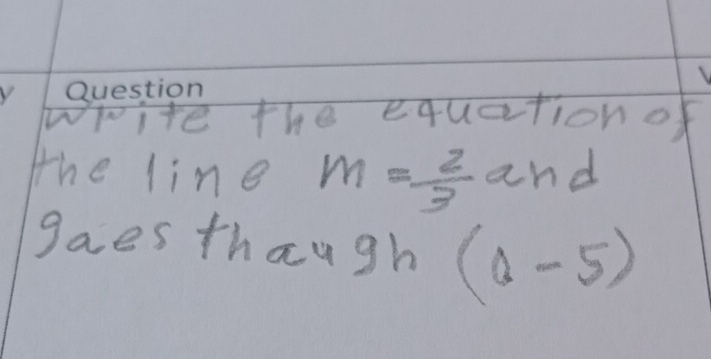 Question
write the equation of
the line m = 2/3 and
gaes thaugh (0 - 5)